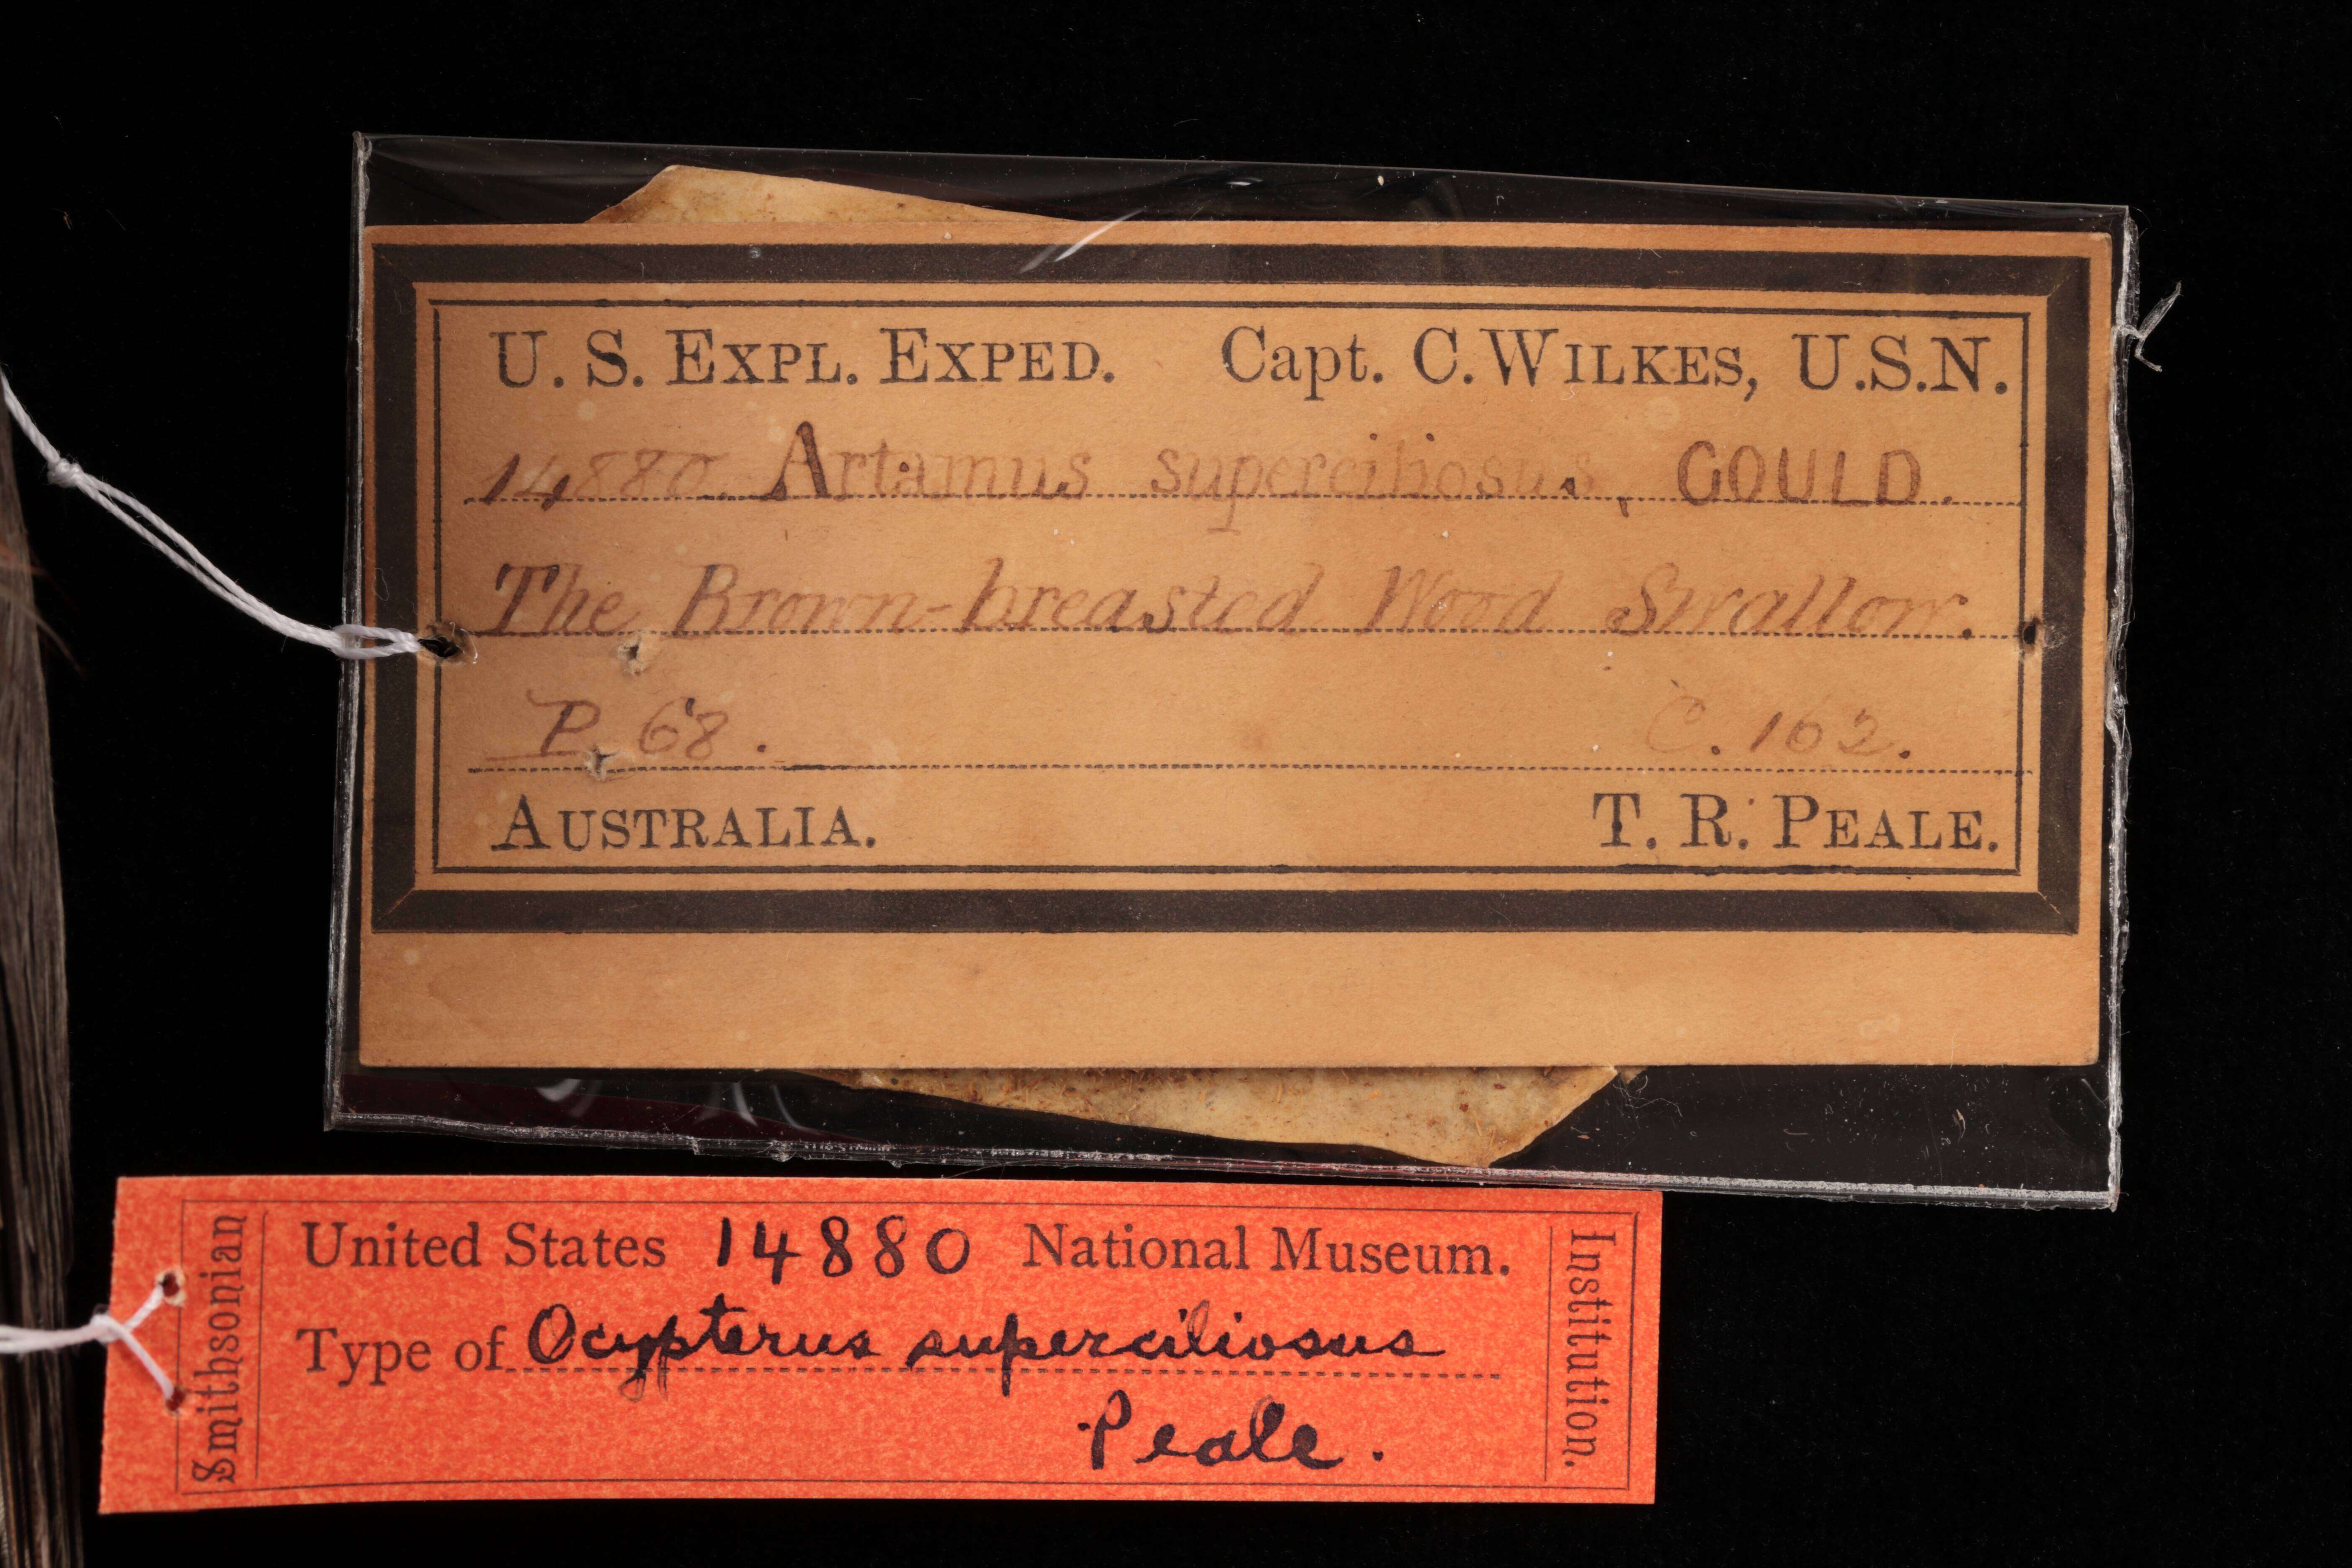 U. S. EXPL. EXPED. Capt. C. WILKES, U.S.N.
14880. Artamus superciliosus, GOULD.
The Brown-breasted Wood Swallow.
P. 68. C. 162.
AUSTRALIA. T. R. PEALE.
Smithsonian
United States 14880 National Museum.
Type of Ocypterus superciliosus
Peale.
Institution.